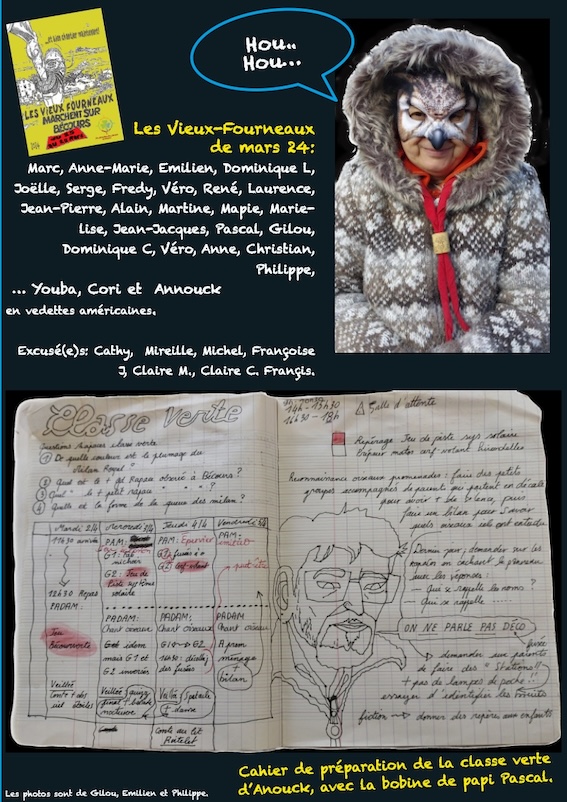 ...et bien chercher maintenant!
LES VIEUX FOURNEAUX
MARCHENT SUR
BÉCOURS
Hou..
Hou...
Les Vieux-Fourneaux
de mars 24:
Marc, Anne-Marie, Emilien, Dominique L,
Joëlle, Serge, Fredy, Véro, René, Laurence,
Jean-Pierre, Alain, Martine, Mapie, Marie-
lise, Jean-Jacques, Pascal, Gilou,
Dominique C, Véro, Anne, Christian,
Philippe,
... Youba, Cori et Annouck
en vedettes américaines.
Excusé(e)s: Cathy, Mireille, Michel, Françoise
J, Claire M., Claire C. Françis.
Classe verte
Questions Rapaces classe verte
① De quelle couleur est le plumage du
Milan Royal"
② Quel est le + gd Rapace observé à Bécours?
③ Quel " le + petit rapace
④ Quelle est la forme de la queue des milans?
Mardi 2/4 Mercredi 3/4 Jeudi 4/4 Vendredi 5/4
11h30 arrivée
PAM:
G1:
G2: Jeu de
Piste système
solaire
PAM: Epervier
G1 fusée à o
G2
PAM:
12h30 Repas
PADAM:
Jeu
Béœuvorts
PADAM:
Chant oiseau
idem
mais G1 et
G2 inversés
PADAM:
Chant oiseaux
G1 ↔ G2
16h30:
des fusées
PADAM
Chant oiseau
A prem
ménage
+
bilan
peut être
Veillée
Conte + des
ciel étoiles
Veillée quizz
final + balade
nocturne
Veillée Spatiale
+ danse
Conte au lit
Roitelet
14h - 15h30
16h30 - 18h
Salle d'attente
Repérage Jeu de piste sys solaire
vapeur motos cerf volant hirondelles
Reconnaissance oiseaux promenades: faire des petits
groupes accompagnés de parents qui partent en décalé
pour avoir + de silence, puis
faire un bilan pour savoir
quels oiseaux ils ont entendu
Dernier jour, demander sur les
rapaces en cachant le panneau
avec les réponses:
- Que se rappelle les noms?
- Qui se rappelle
ON NE PARLE PAS DÉCO
fusée
→ demander aux parents
de faire des "Stations"!!
+ pas de lampes de poche!!
essayer d'identifier les bruits
fiction → donner des repères aux enfants
Cahier de préparation de la classe verte
d'Anouck, avec la bobine de papi Pascal.
Les photos sont de Gilou, Emilien et Philippe.